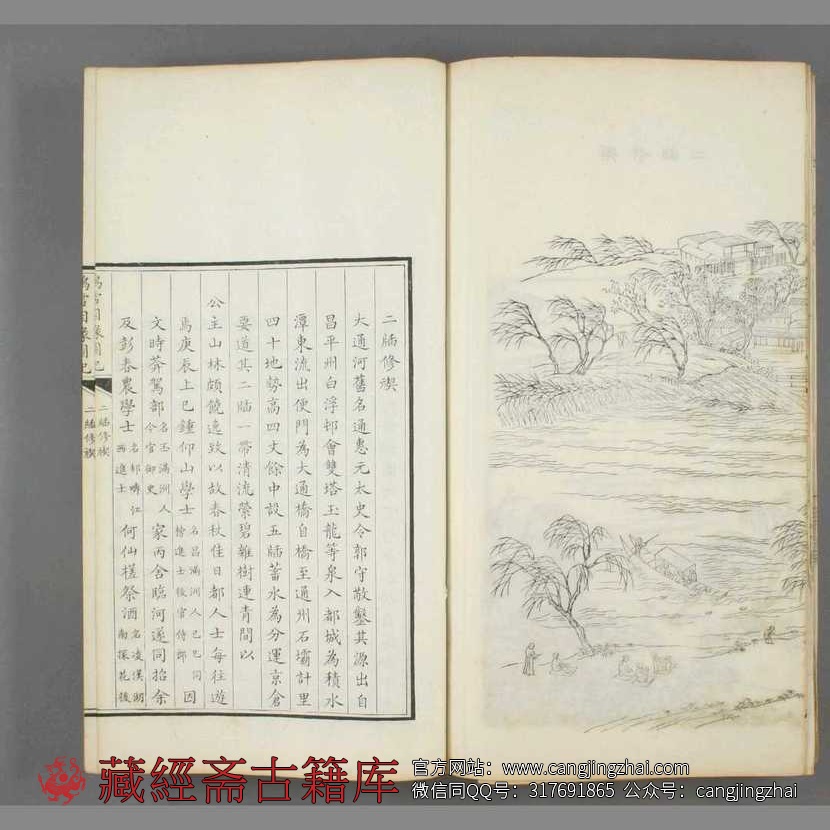 二牐修禊
大通河舊名通惠元太史令郭守敬鑿其源出自
昌平州白浮邨會雙塔玉龍等泉入都城為積水
潭東流出便門為大通橋自橋至通州石壩計里
四十地勢高四丈餘中設五牐蓄水為分運京倉
要道其二牐一帶清流縈碧雜樹連青間以
公主山林頗饒逸致以故春秋佳日都人士每往遊
焉庚辰上巳鍾仰山學士名昌滿洲人己巳同榜進士後官侍郎因
文時莽駕部名丕滿洲人今官御史家丙舍臨河遂同招余
及彭春農學士名邦疇江西進士何仙槎祭酒名凌漢湖南探花後
鴻雪因緣圖記
二牐修禊
藏經斋古籍库
官方网站：www.cangjingzhai.com
微信同QQ号：317691865 公众号：cangjingzhai